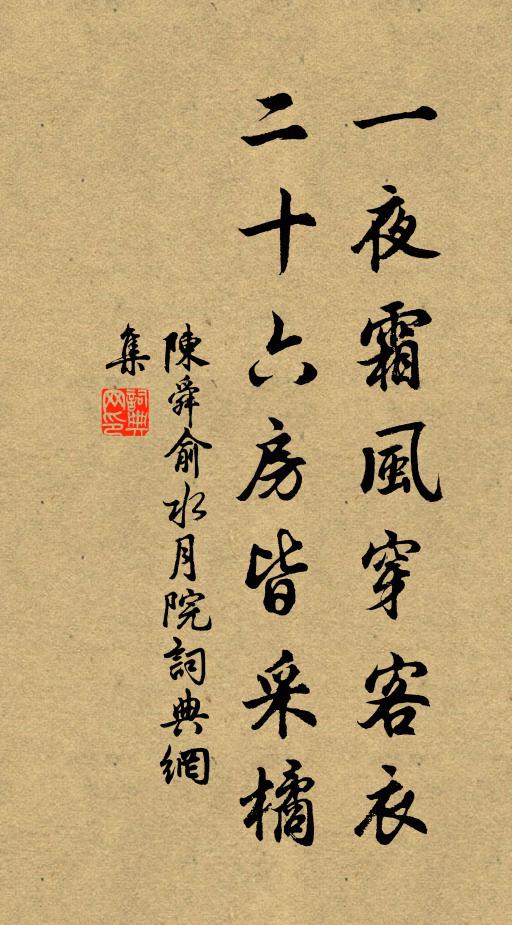 一夜霜風穿客衣
二十六房皆采橘
陳舜俞水月院詞典網
集
詞典網印